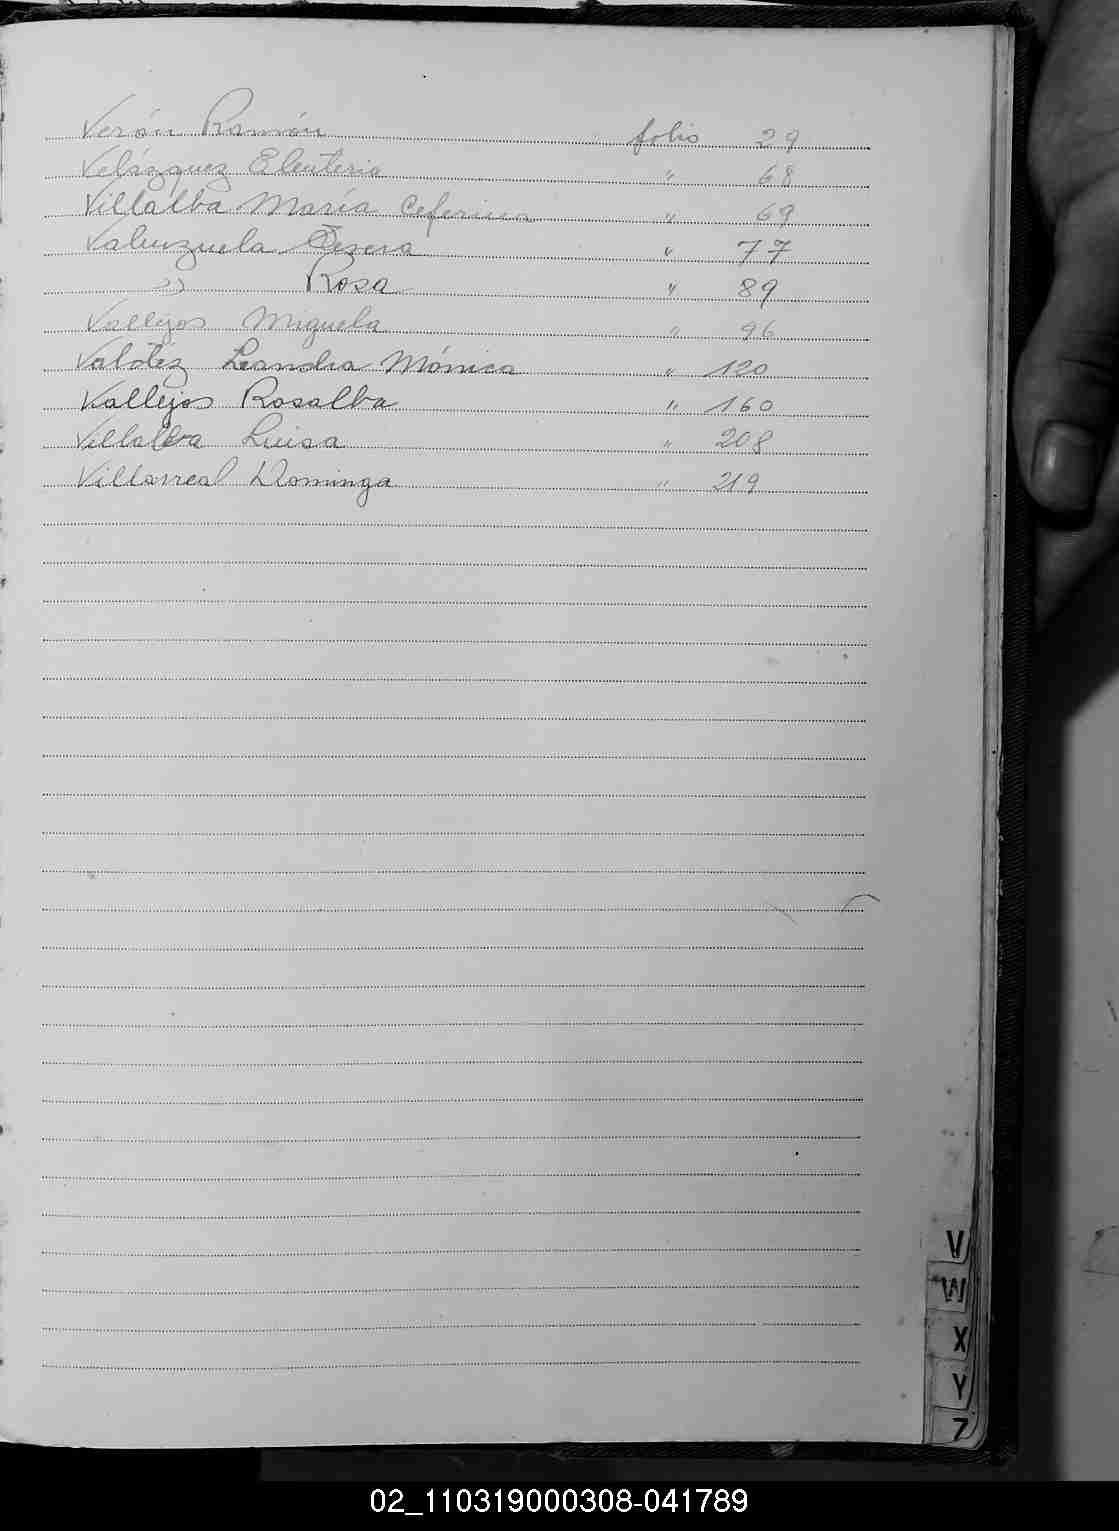 Verón Ramón folio 29
Velázquez Eleuteria " 68
Villalba María Ceferina " 69
Valenzuela " 77
" Rosa " 89
Vallejos Miguela " 96
Valdez Leandra Mónica " 120
Vallejos Rosalba " 160
Villalba Luisa " 208
Villarreal Dominga " 219
V
W
X
Y
Z
02_110319000308-041789